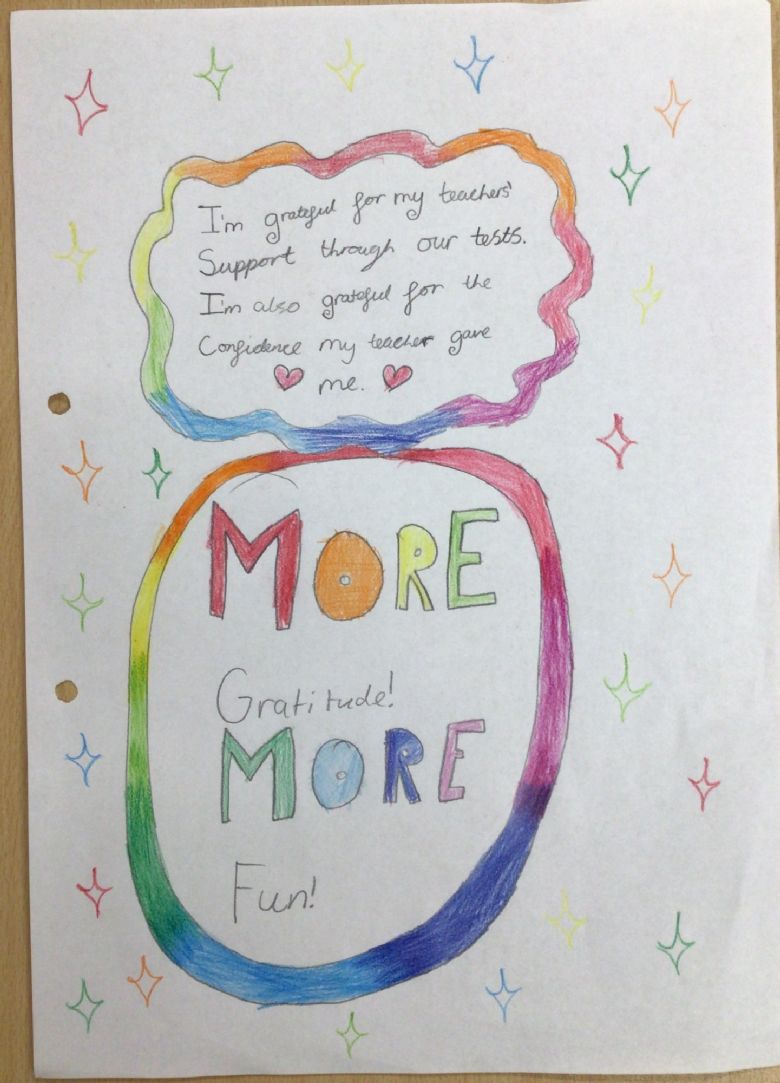 I'm grateful for my teachers'
Support through our tests.
I'm also grateful for the
Confidence my teacher gave
me.
MORE
Gratitude!
MORE
Fun!